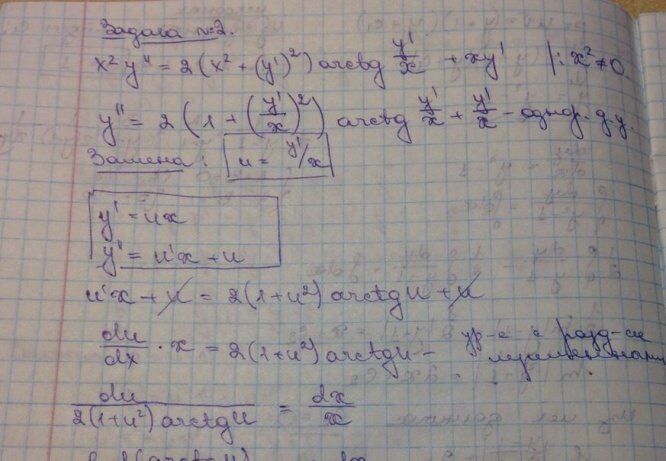 Задача №2.
x² y'' = 2(x² + (y')²) arctg y'/x + xy' |: x² ≠ 0
y'' = 2(1 + (y'/x)²) arctg y'/x + y'/x - однор. д.у.
Замена: u = y'/x
y' = ux
y'' = u'x + u
u'x + u = 2(1+u²) arctg u + u
du/dx · x = 2(1+u²) arctg u - ур-е с разд-ся
переменными.
du/2(1+u²) arctg u = dx/x